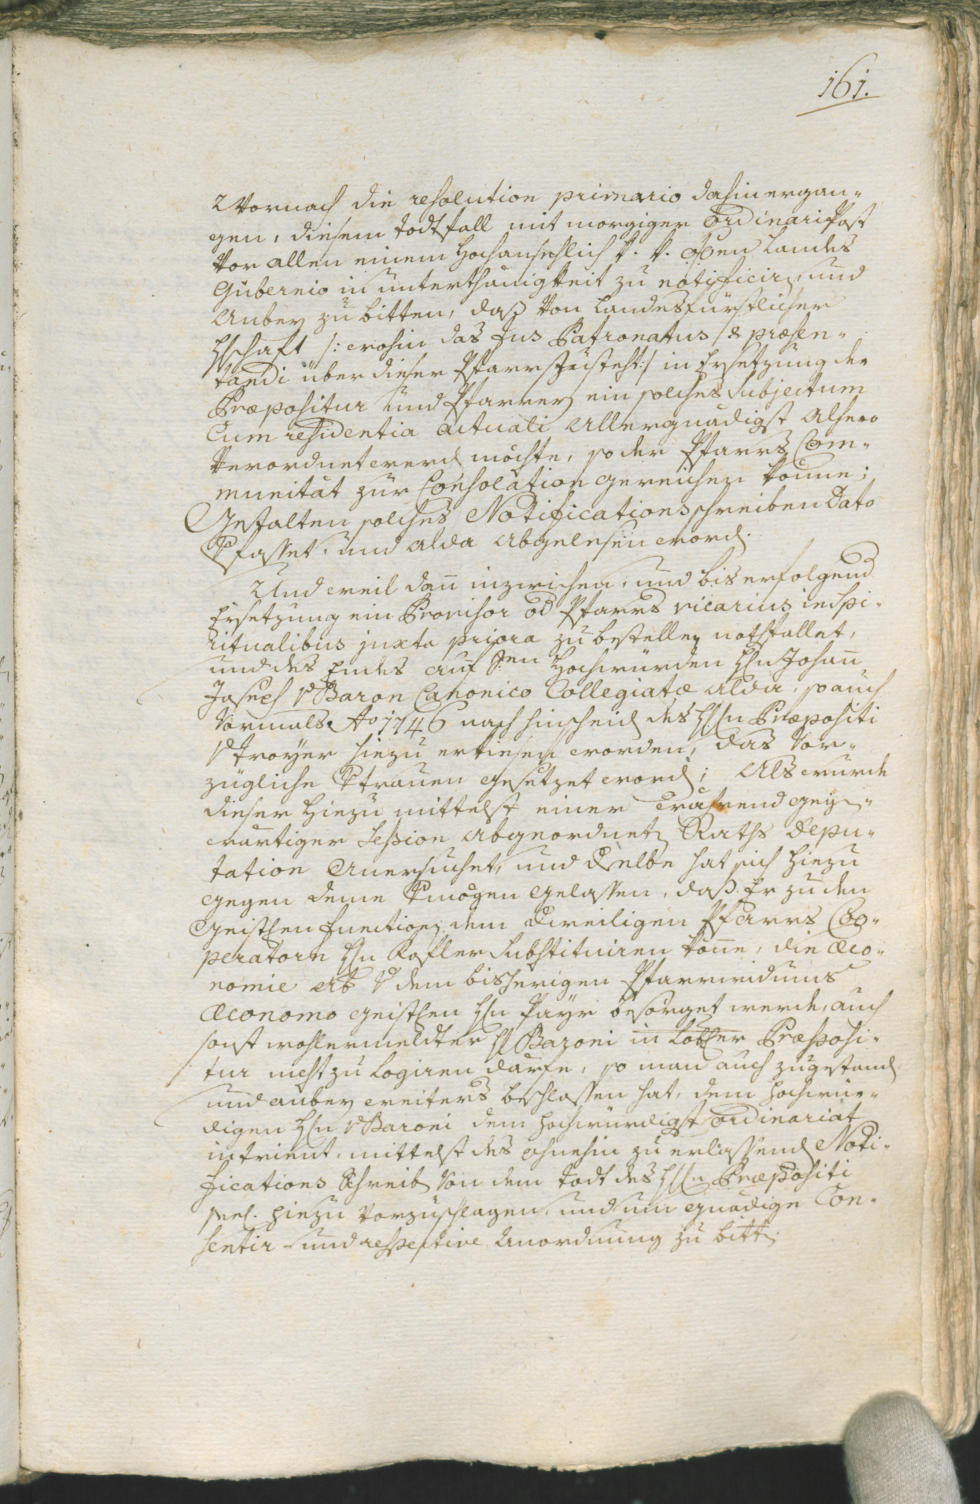 161.
Wornach die resolution primario dahin ergan„
gen, diesem Todtfall mit morgiger Ordinari Post
vor allen einem Hochansehlich k. k. Landes
Gubernio in Unterthänigkeit zu notificirn und
anbey zu bitten, daß von Landesfürstlicher
Hschaft /: wohin das Jus Patronatus & præsen„
tandi über dieser Pfarr zusteht :/ in Ersetzung der
Præpositur und Pfarrey ein solches Subjectum
cum residentia actuali allergnädigst alhero
verordnet werd möchte, so der Pfarrs Com„
munität zur Consolation gereichen könne;
Gestalten solches Notifications schreiben Dato
Vfasset, und alda abgelesen word.
Und weil dan̅ inzwischen, und bis erfolgend
Ersetzung ein Provisor od Pfarrs vicarius in Spi„
ritualibus juxta priora zu bestellen nothfallet,
und des Endes auf Sr. Hochwürden Hn Johan̅
Joseph v Baron Canonico Collegiatæ alda, so auch
vormals Ao 1746 nach hinscheid des Hn Præpositi
v Troyer hiezu erkiesen worden, das vor„
zügliche Vtrauen gesetzet word; Als wurde
dieser hiezu mittelst einer während gegen„
wärtiger Session abgeordnet Raths Depu„
tation anersuchet, und dselbe hat sich hiezu
gegen deme Vmögen gelassen, daß Er zu den
Geistlen functionen dem dweiligen Pfarrs Coo„
peratorn Hn Kofler Substituiren kön̅e, die œco„
nomie ab V dem bisherigen Pfarrwidums
Œconomo geistlen Hn Payr besorget werde, auch
sonst wohlermeldter H Baroni in Præposi„
tur nicht zu Logiren därfe, so man auch zugestand
und anbey weiters beschlossen hat, dem hochwür„
digen Hn v Baroni dem hochwürdigst Ordinariat
in trient, mittelst des ohnehin zu erlassend Noti„
fications Schreib von dem Todt des Hn Præpositi
seel. hiezu vorzuschlagen, und um gnädige Con„
sentir - und respective Anordnung zu bitt.